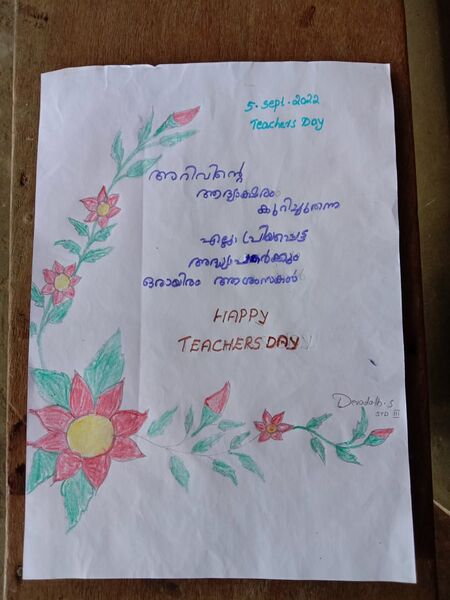 5. Sept. 2022
Teachers Day
അറിവിന്റെ
ആദ്യാക്ഷരം
കുറിച്ചുതന്ന
എല്ലാ പ്രിയപ്പെട്ട
അദ്ധ്യാപകർക്കും
ഒരായിരം ആശംസകൾ
HAPPY
TEACHERS DAY
Devadath. S
STD III